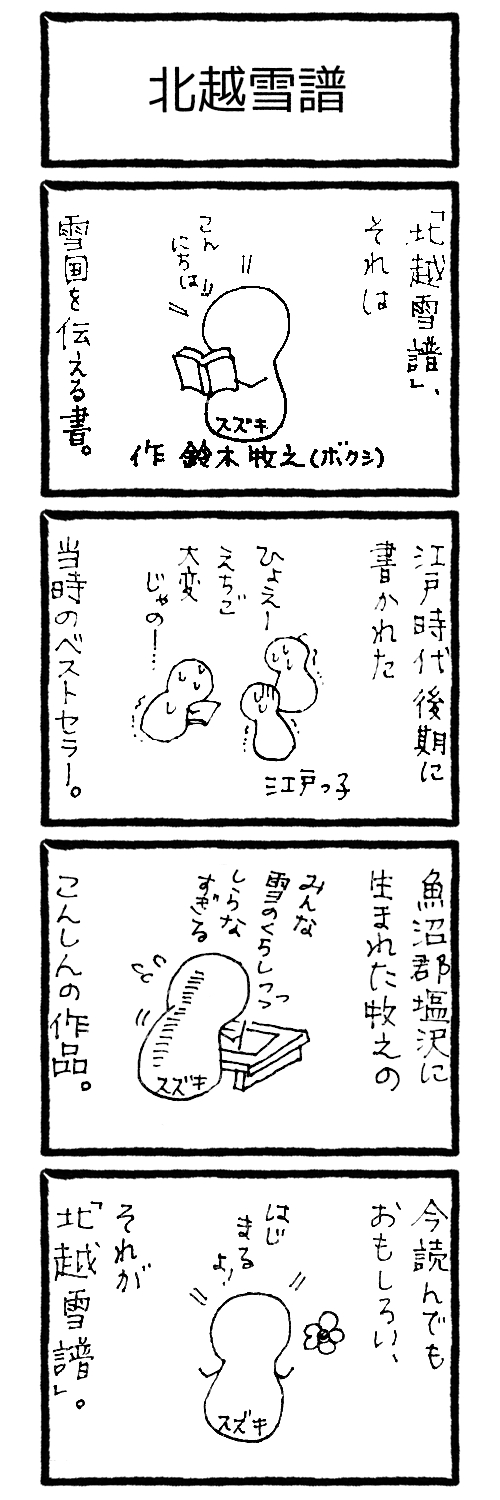 北越雪譜
「北越雪譜」、
それは
こん
にちは!!
スズキ
作 鈴木牧之(ボクシ)
雪国を伝える書。
江戸時代後期に
書かれた
ひょえー
えちご
大変
じゃのー…
江戸っ子
当時のベストセラー。
魚沼郡塩沢に
生まれた牧之の
みんな
雪のくらしっっ
しらな
すぎる
スズキ
こんしんの作品。
今読んでも
おもしろい、
はじ
まる
よ!!
スズキ
それが
「北越雪譜」。